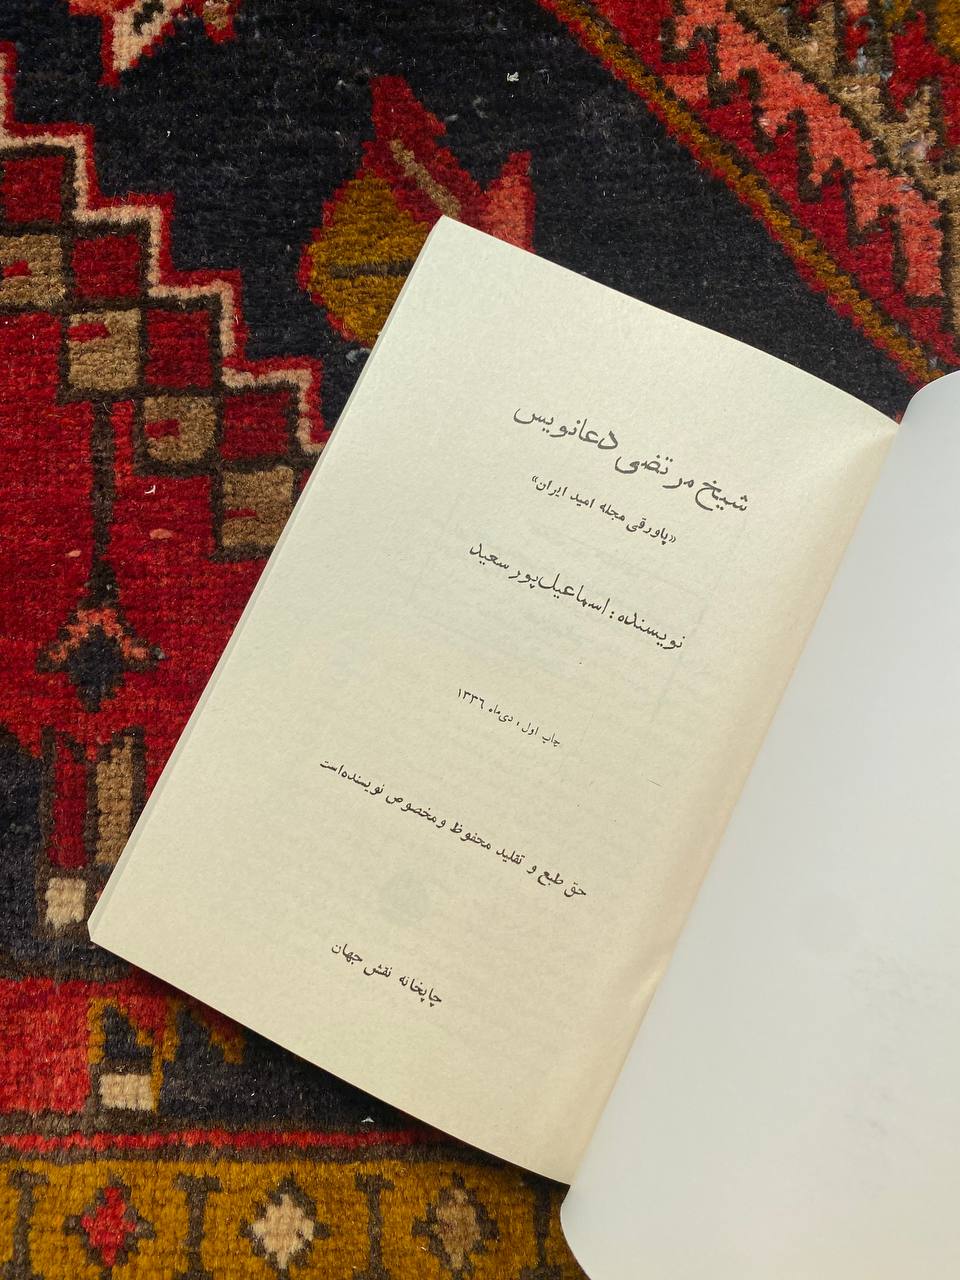 شیخ مرتضی دعانویس
«پاورقی مجله امید ایران»
نویسنده : اسماعیل پور سعید
چاپ اول ، دی ماه ۱۳۳۶
حق طبع و تقلید محفوظ و مخصوص نویسنده است
چاپخانه نقش جهان